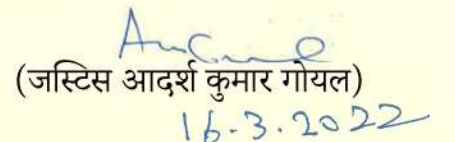 (जस्टिस आदर्श कुमार गोयल)
16.3.2022